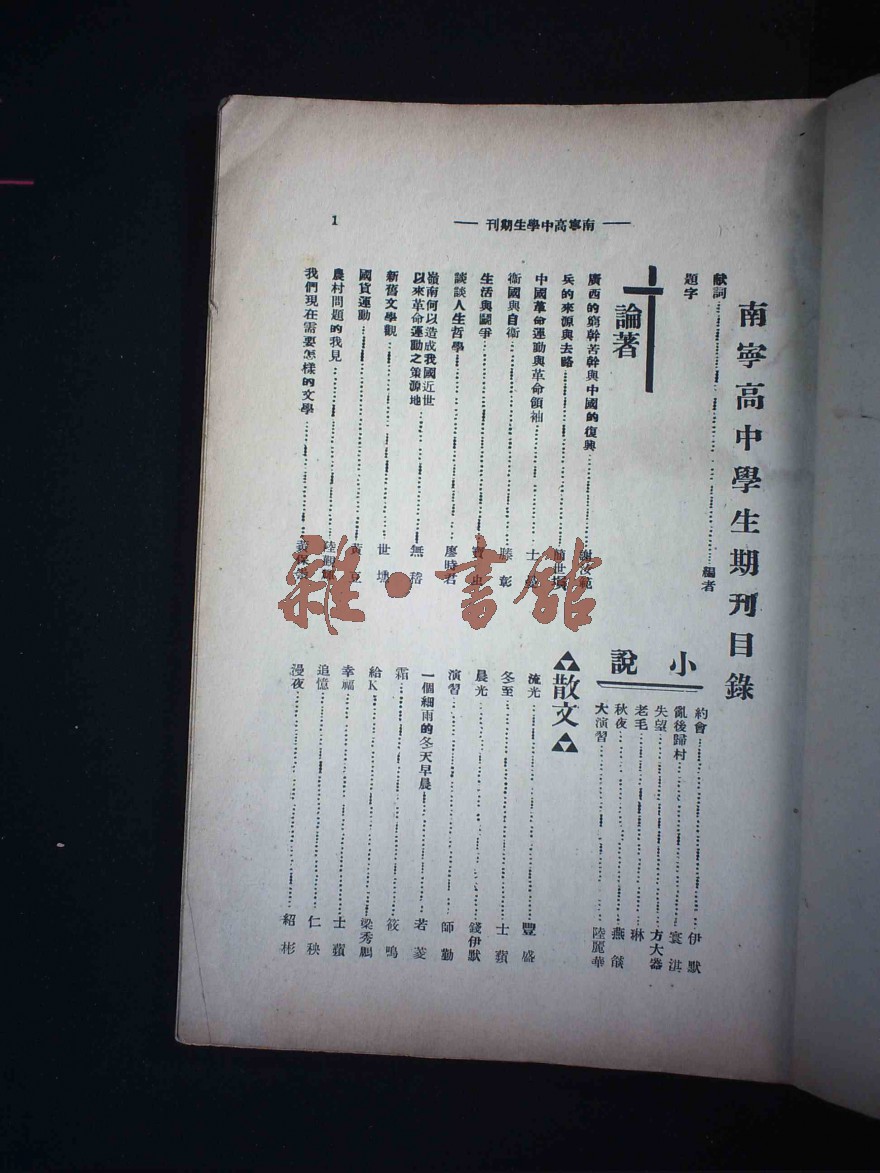 南寧高中學生期刊
1
南寧高中學生期刊目錄
献詞 編者
題字
論著
廣西的窮幹苦幹與中國的復興 謝汝範
兵的來源與去路 世
中國革命運動與革命領袖 士
衞國與自衞 勝彰
生活與鬪爭
談談人生哲學 廖時君
嶺南何以造成我國近世
以來革命運動之策源地 無
新舊文學觀 世
國貨運動 黃
農村問題的我見 陸觀
我們現在需要怎樣的文學 黃保
小說
約會 伊默
亂後歸村 寰淇
失望 方大器
老毛 琳
秋夜 燕
大演習 陸麗華
散文
流光 豐盛
冬至 士蘋
晨光 錢伊默
演習 師勤
一個細雨的冬天早晨 若菱
霜 筱鳴
給K 梁秀鵬
幸福 士蘋
追憶 仁秧
漫夜 紹彬
雜·書舘